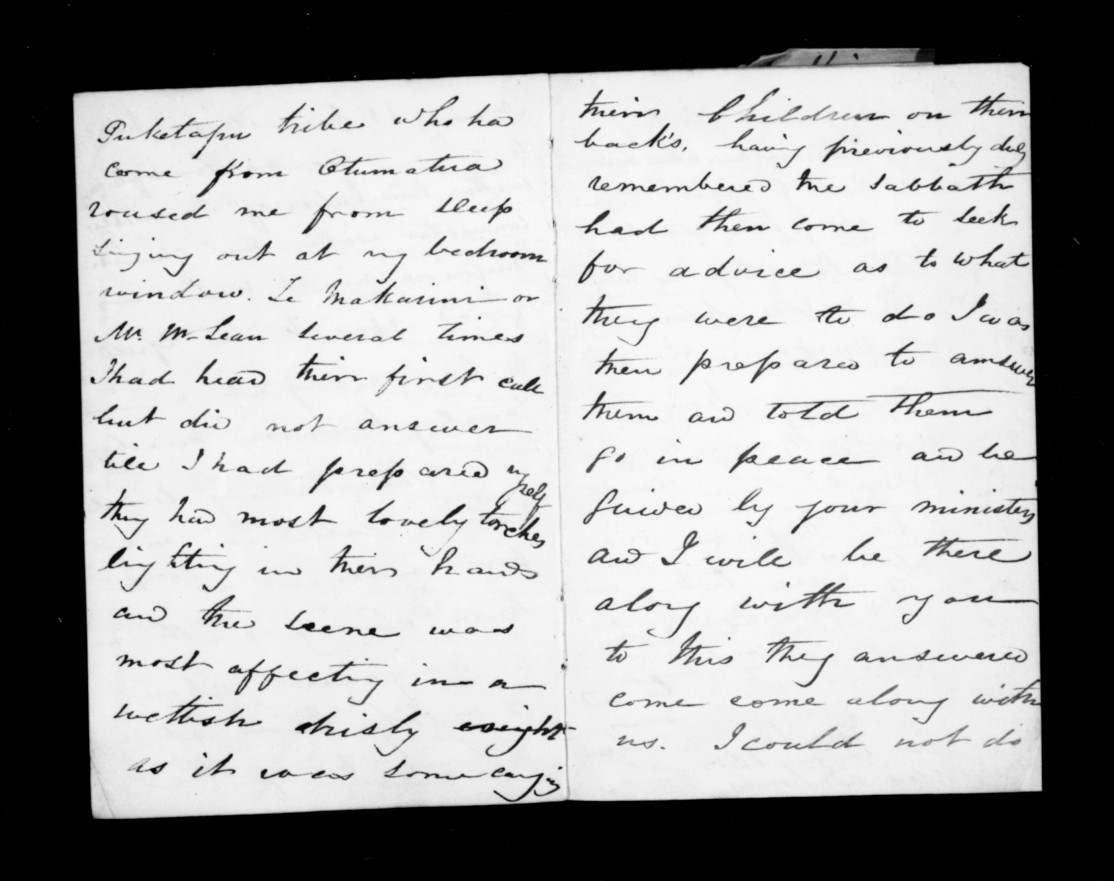 Puketapu tribe who had
come from Otumatua
roused me from sleep
singing out at my bedroom
window. Te Makarini or
Mr. McLean several times
I had heard their first call
but did not answer
till I had prepared myself
they had most lovely torches
lighting in their hands
and the scene was
most affecting in a
wettish drisly night
as it was some carrying
their Children on their
back's, having previously duly
remembered the Sabbath
had then come to seek
for advice as to what
they were to do I was
then prepared to answer
them and told them
go in peace and be
guided by your ministers
and I will be there
along with you
to this they answered
come come along with
us. I could not do